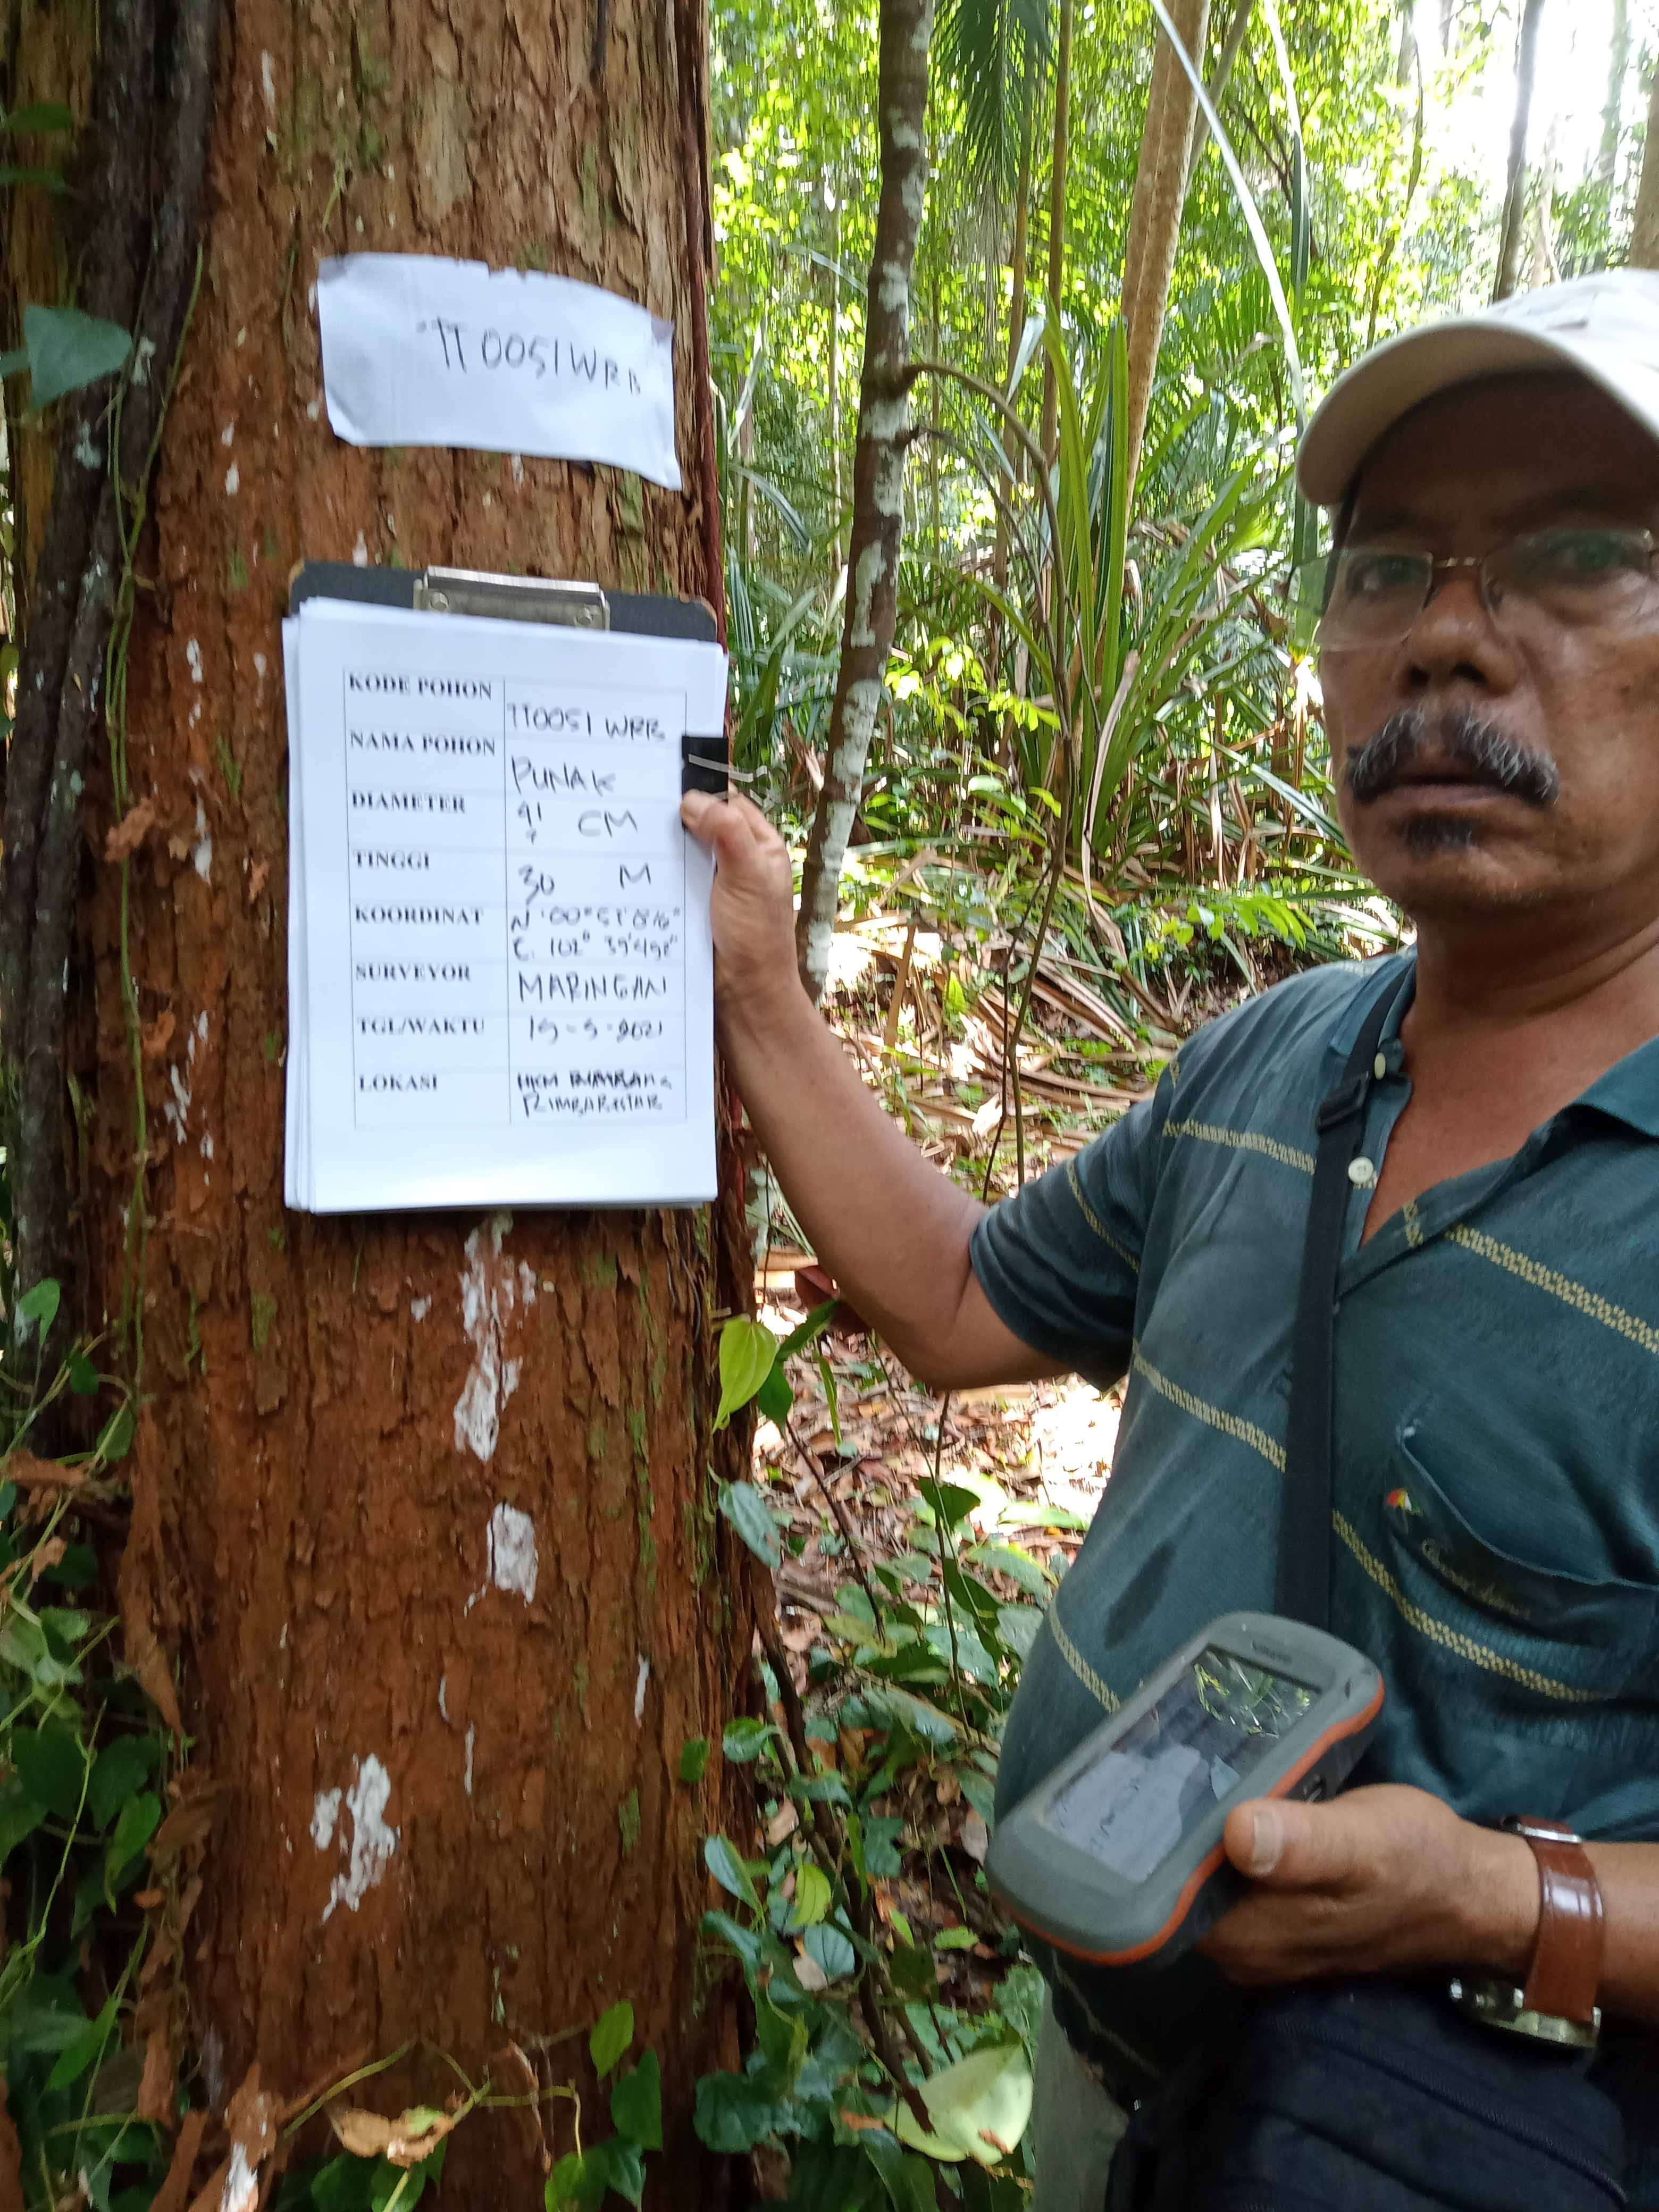 TT0051WRB
KODE POHON TT0051 WRB
NAMA POHON PUNAK
DIAMETER 91 CM
TINGGI 30 M
KOORDINAT N 00° 51' 
E. 102° 39'
SURVEYOR MARINGAN
TGL/WAKTU 19-5-2021
LOKASI HKM